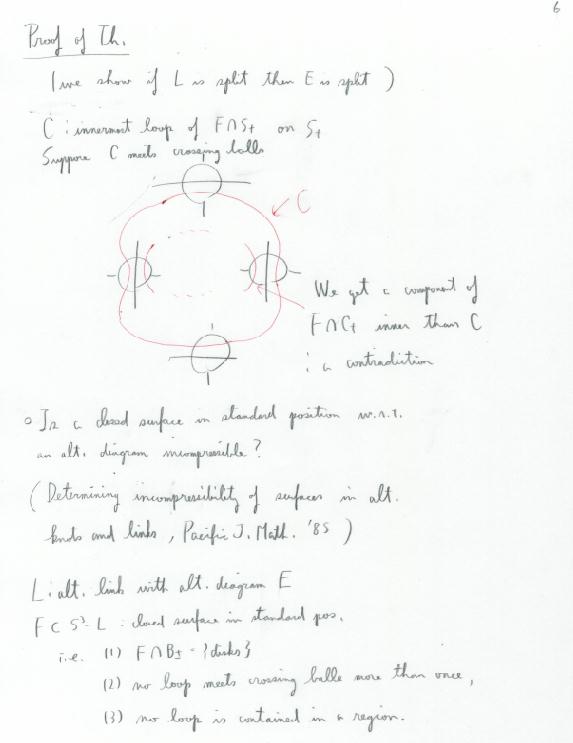 6
Proof of Th.
(we show if L is split then E is split )
C : innermost loop of F∩S+ on S+
Suppose C meets crossing balls
C
We get a component of
F∩C+ inner than C
: a contradiction
o Is a closed surface in standard position w.r.t.
an alt. diagram incompressible?
( Determining incompressibility of surfaces in alt.
knots and links , Pacific J. Math. '85 )
L : alt. link with alt. diagram E
F ⊂ S³-L : closed surface in standard pos.
i.e. (1) F∩B± = {disks}
(2) no loop meets crossing balls more than once,
(3) no loop is contained in a region.